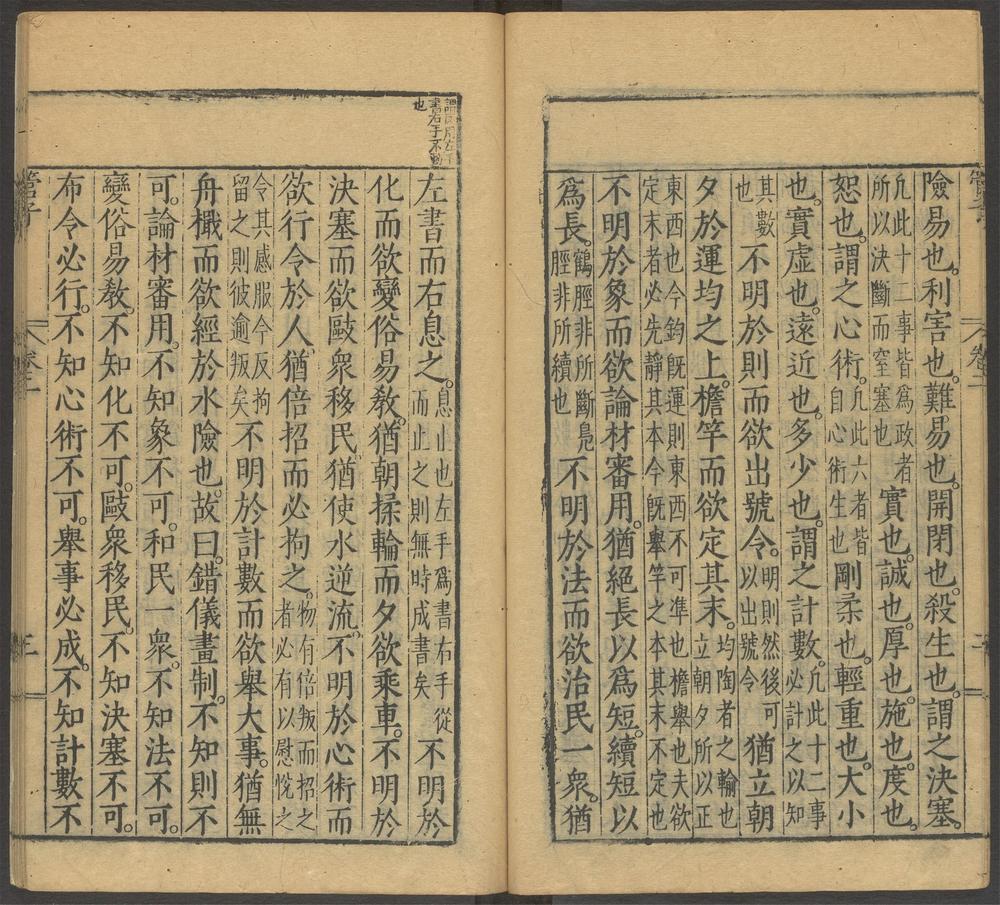 險易也。利害也。難易也。開閉也。殺生也。謂之決塞。
凢此十二事皆爲政者
所以決斷而窒塞也
實也。誠也。厚也。施也。度也。
恕也。謂之心術。
凢此六者皆
自心術生也
剛柔也。輕重也。大小
也。實虛也。遠近也。多少也。謂之計數。
凢此十二事
必計之以知
其數
也
不明於則而欲出號令。
明則然後可
以出號令
猶立朝
夕於運均之上。檐竿而欲定其末。
均陶者之輪也
立朝夕所以正
東西也今鈞旣運則東西不可準也檐舉也夫欲
定末者必先靜其本今旣舉竿之本其末不定也
不明於象而欲論材審用。猶絕長以爲短。續短以
爲長。
鶴脛非所斷鳬
脛非所續也
不明於法而欲治民一衆。猶
謂用左手
書右手不動
也
左書而右息之。
息止也左手爲書右手從
而止之則無時成書矣
不明於
化而欲變俗易教。猶朝揉輪而夕欲乘車。不明於
決塞而欲敺衆移民。猶使水逆流。不明於心術而
欲行令於人。猶倍招而必拘之。
物有倍叛而招之
者必有以慰悅之
令其感服今反拘
留之則彼逾叛矣
不明於計數而欲舉大事。猶無
舟檝而欲經於水險也。故曰。錯儀畫制。不知則不
可。論材審用。不知象不可。和民一衆。不知法不可。
變俗易教。不知化不可。敺衆移民。不知決塞不可。
布令必行。不知心術不可。舉事必成。不知計數不
管子
卷二
三